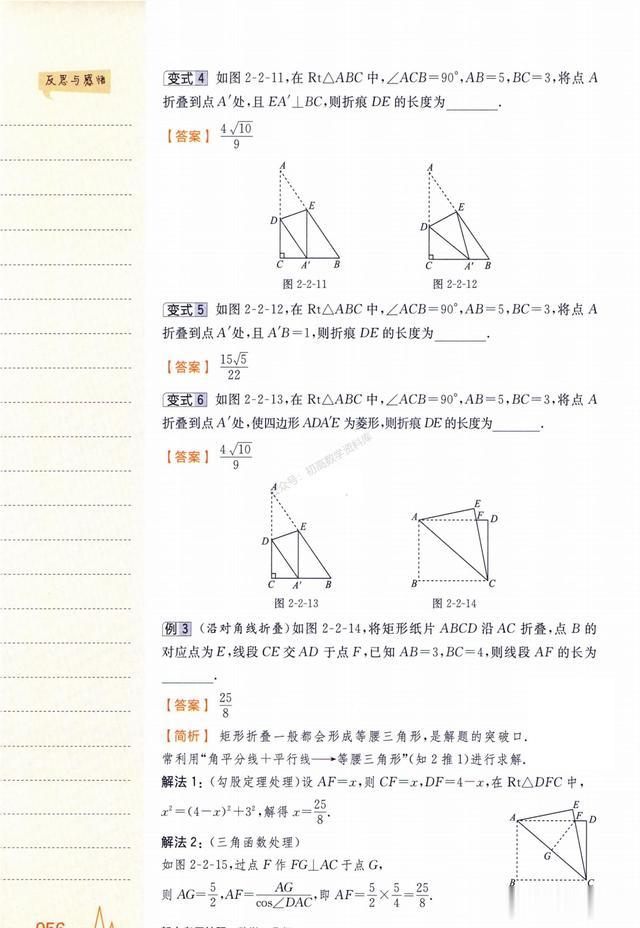 反思与感悟
变式4 如图 2-2-11,在 Rt△ABC 中,∠ACB=90°,AB=5,BC=3,将点 A
折叠到点 A′处,且 EA′⊥BC,则折痕 DE 的长度为______.
【答案】 4√10/9
A
E
D
C A′ B
图 2-2-11
A
E
D
C A′ B
图 2-2-12
变式5 如图 2-2-12,在 Rt△ABC 中,∠ACB=90°,AB=5,BC=3,将点 A
折叠到点 A′处,且 A′B=1,则折痕 DE 的长度为______.
【答案】 15√5/22
变式6 如图 2-2-13,在 Rt△ABC 中,∠ACB=90°,AB=5,BC=3,将点 A
折叠到点 A′处,使四边形 ADA′E 为菱形,则折痕 DE 的长度为______.
【答案】 4√10/9
众号：初高数学资料库
A
E
D
C A′ B
图 2-2-13
E
A F D
B C
图 2-2-14
例3 (沿对角线折叠)如图 2-2-14,将矩形纸片 ABCD 沿 AC 折叠,点 B 的
对应点为 E,线段 CE 交 AD 于点 F,已知 AB=3,BC=4,则线段 AF 的长为
______.
【答案】 25/8
【简析】 矩形折叠一般都会形成等腰三角形,是解题的突破口.
常利用“角平分线+平行线→等腰三角形”(知 2 推 1)进行求解.
解法 1:(勾股定理处理)设 AF=x,则 CF=x,DF=4-x,在 Rt△DFC 中,
x²=(4-x)²+3²,解得 x=25/8.
解法 2:(三角函数处理)
如图 2-2-15,过点 F 作 FG⊥AC 于点 G,
则 AG=5/2,AF=AG/cos∠DAC,即 AF=5/2×5/4=25/8.
E
A F D
G
B C
056